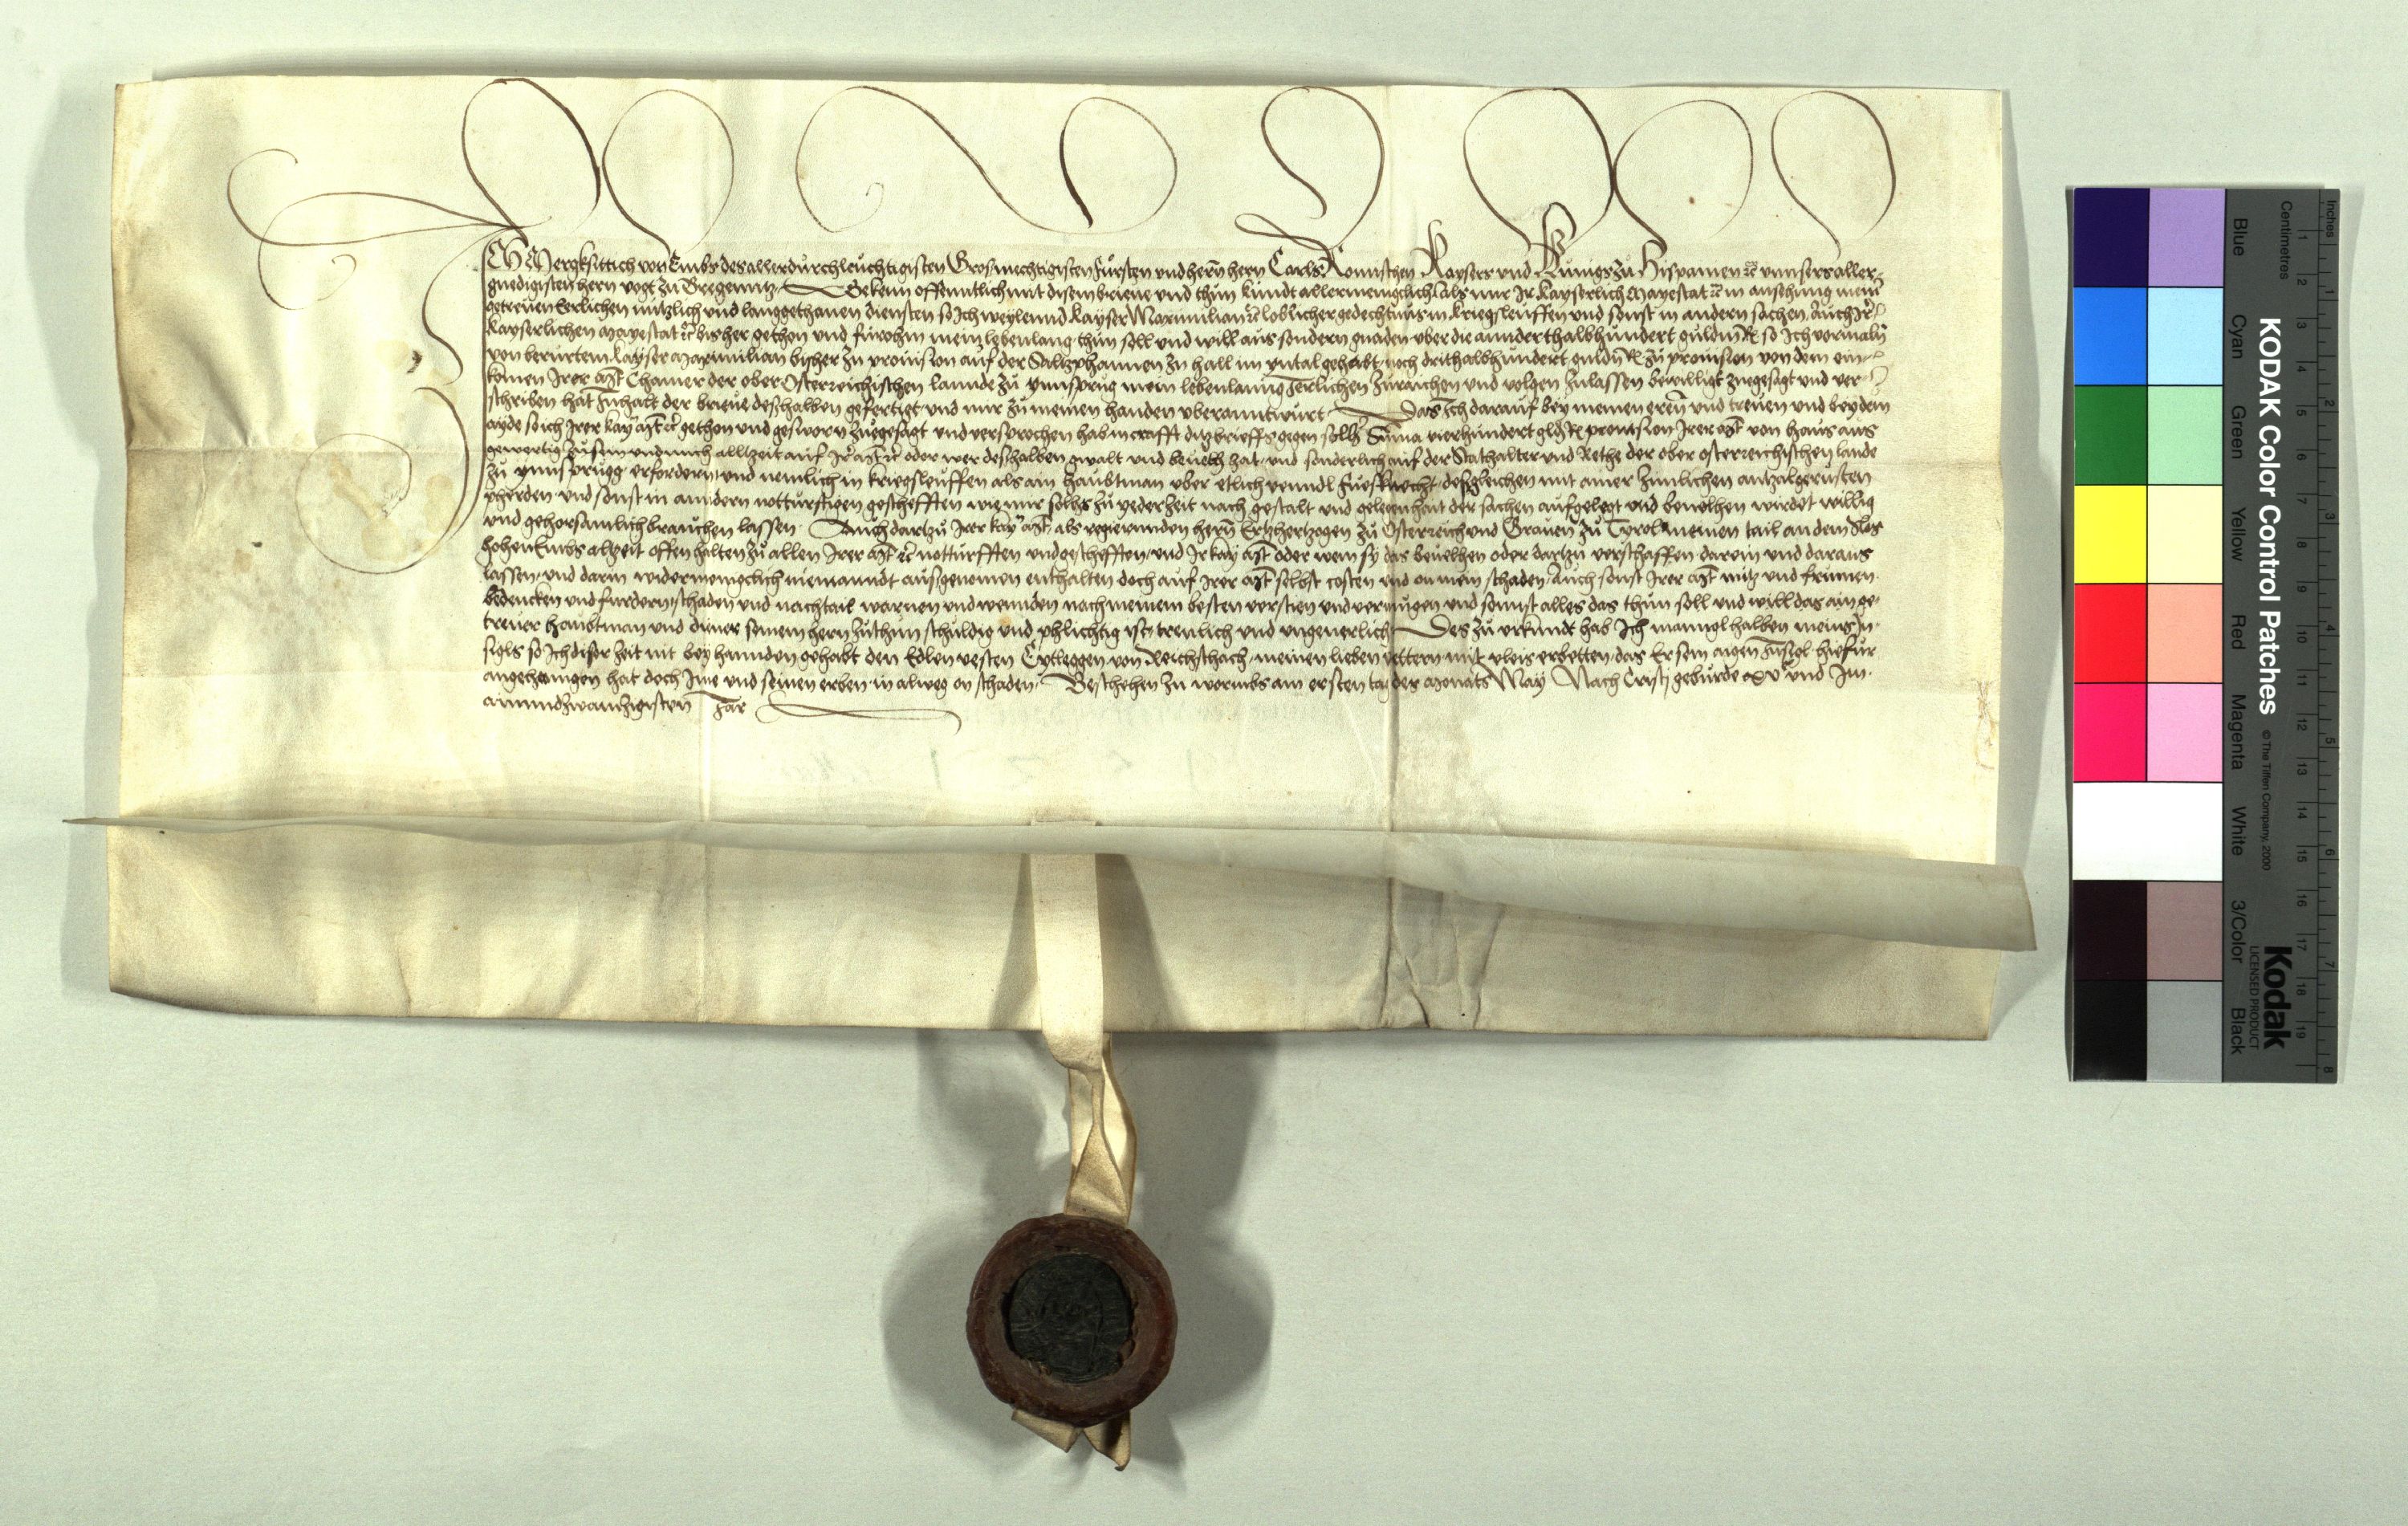 ICH Mergksittich von Embs des allerdurchleuchtigisten Grosmechtigisten Fürsten und hern hern Carls Romischen Kaysers und Kunigs zu Hispanien &c unnsers aller-
gnedigisten hern vogt zu Bregenntz Bekenn offenntlich mit disem brieue und thun kundt allermenigclich Als mir Ir Kayserlich Mayestat &c in ansehung meiner
getreuen Erlichen nützlich und langgethanen diensten so Ich weylennd Kayser Maximilian &c loblicher gedechtnus in kriegsleuffen und sonst in andern sachen, Auch Irer
Kayserlichen Mayestat &c bisher gethon und fürohin mein lebenlang thun soll und will aus sondern gnaden uber die annderthalbhundert guldin R so Ich vormaln
von berürtem Kayser Maximilian bisher zu provision auf der Saltzphannen zu hall im yntal gehabt, noch drithalbhundert guldn R zu provision von dem ein-
komen Irer Mt Chamer der ober Osterreichischen lannde zu ynnsprug mein lebenlanng Jerlichen zuraichen und volgen zulassen bewilligt zuegesagt und ver-
schriben hat Inhalt der brieue deshalben gefertigt und mir zu meinen handen uberanntwurt Das Ich darauf bey meinen eren und treuen und bey dem
ayde so ich Irer kay Mt &c gethon und gesworn zuegesagt und versprochen hab in crafft ditz brieffs gegen solher Suma vierhundert gldn R provision Irer Mt von haus aus
gewertig zu sein und mich alltzeit auf Irer Mt &c oder wer deshalben gwalt und beuelh hat, und sonderlich auf der Stathalter und Rethe der ober osterreichischen lande
zu ynnsprugg erfordern, und nemlich in kriegsleuffen als ain haubtman uber etlich venndl Fueßknecht, desgleichen mit ainer zimlichen antzal gerüsten
pherden und sonst in anndern notturftigen geschefften wie mir solhs zu yeder zeit nach gestalt und gelegenhait der sachen aufgelegt und beuolhen wirdet willig
und gehorsamlich brauchen lassen. Auch dartzu Irer kay Mt als regierunden hern Ertzhertzogen zu Osterreich und Grauen zu Tyrol meinen tail an dem Slos
hohen Embs altzeit offen halten zu allen Irer Mt &c notturfften und geschefften, und Ir kay Mt oder wem sy das beuelhen oder dartzu verschaffen darein und daraus
lassen, und darin wider menigclich niemanndt ausgenomen enthalten doch auf Irer Mt selbst costen und on mein schaden, Auch sonst Irer Mt nutz und frumen
bedencken und furdern, schaden und nachtail warnen und wennden nach meinem besten verstien und vermugen und sonnst alles das thun soll und will das ain ge-
treuer haubtman und diener seinem hern zuthun schuldig und phlichtig ist, treulich und ungeuerlich Des zu urkundt hab Ich manngl halben meins In-
sigls so Ich diser zeit nit bey hannden gehabt den Edlen vesten Eytleggen von Reichschach meinen lieben vettern mit vleis erbetten, das Er sein aigen Insigl hiefür
angehanngen hat doch Ime und seinen erben in alweg on schaden. Beschehen zu wormbs am ersten tag des Monats May Nach Cristj geburde xvc und Im
ainundzwanzigisten Jar
KODAK Color Control Patches © The Tiffen Company, 2000
Kodak
LICENSED PRODUCT
Inches
Centimetres
Blue Cyan Green Yellow Red Magenta White 3/Color Black
1 2 3 4 5 6 7 8 9 10 11 12 13 14 15 16 17 18 19
1 2 3 4 5 6 7 8